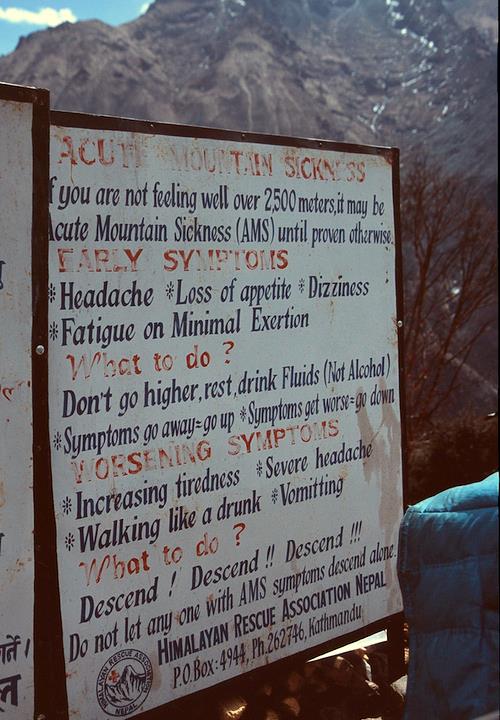 ACUTE MOUNTAIN SICKNESS
If you are not feeling well over 2,500 meters, it may be
Acute Mountain Sickness (AMS) until proven otherwise.
EARLY SYMPTOMS
* Headache * Loss of appetite * Dizziness
* Fatigue on Minimal Exertion
What to do ?
Don't go higher, rest, drink Fluids (Not Alcohol)
* Symptoms go away = go up * Symptoms get worse = go down
WORSENING SYMPTOMS
* Increasing tiredness * Severe headache
* Walking like a drunk * Vomitting
What to do ?
Descend ! Descend !! Descend !!!
Do not let any one with AMS symptoms descend alone.
HIMALAYAN RESCUE ASSOCIATION NEPAL
P.O. Box: 4944, Ph. 262746, Kathmandu
HIMALAYAN RESCUE ASSOCIATION
NEPAL